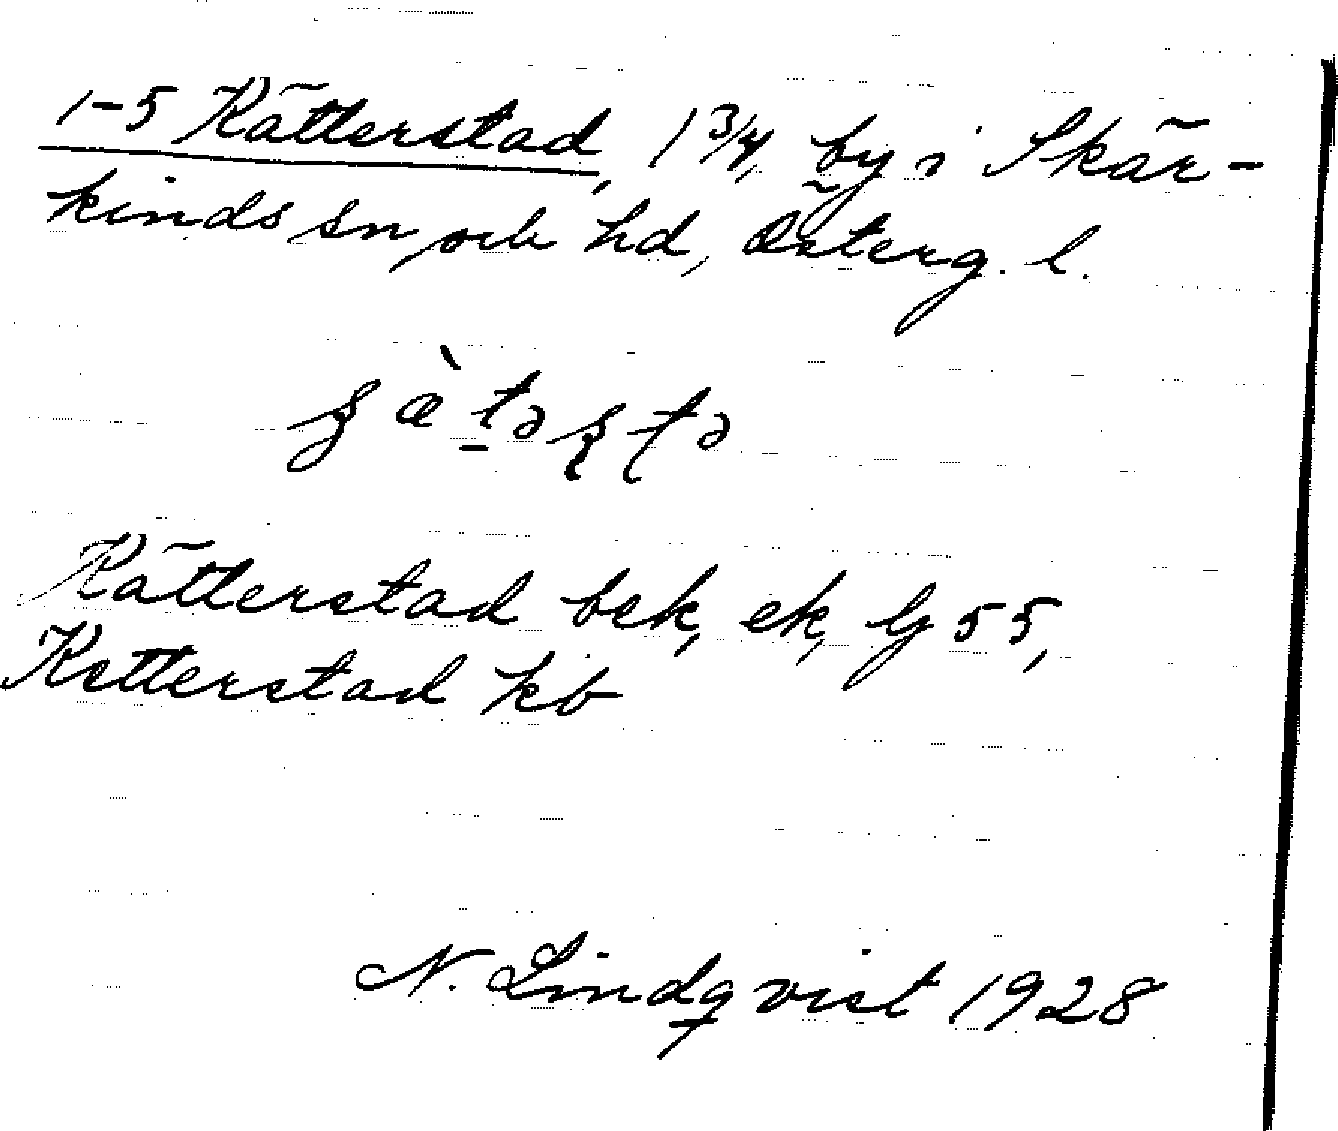 1-5 Kätterstad, 1 3/4, by i Skär-
kinds sn och hd, Österg. l.
Kätterstad bek, ek, Gj 55,
Ketterstad kb
N. Lindqvist 1928